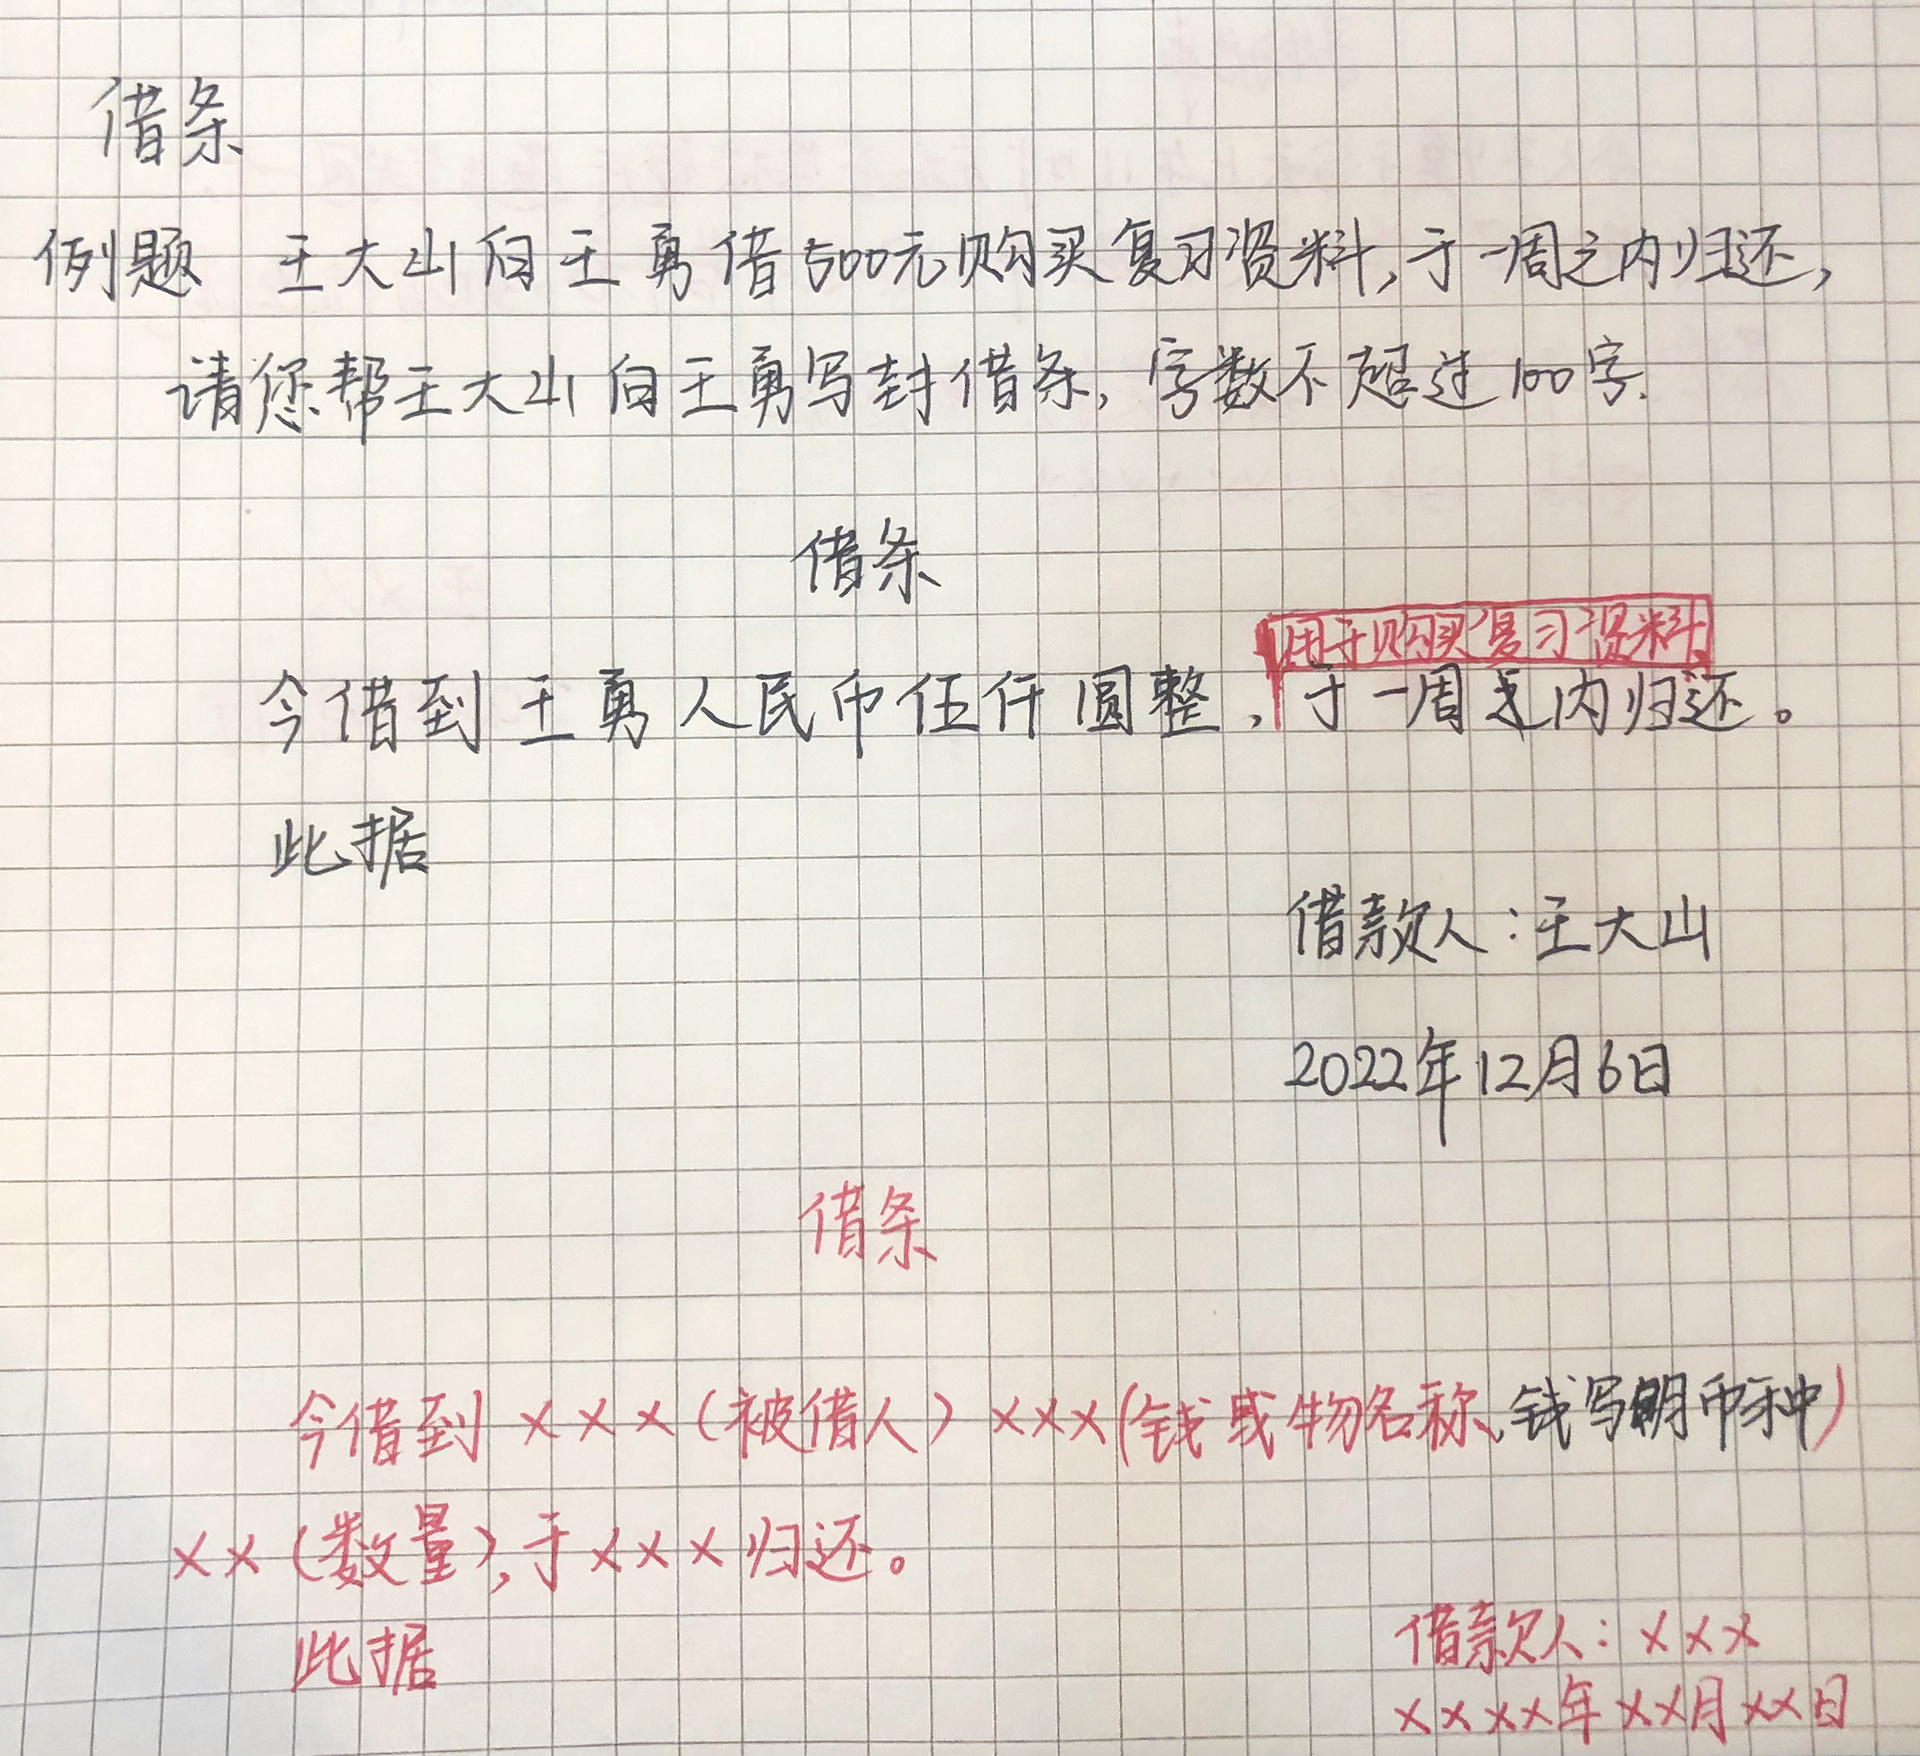 借条
例题 王大山向王勇借500元购买复习资料,于一周之内归还,
请您帮王大山向王勇写封借条,字数不超过100字.
借条
用于购买复习资料,
今借到王勇人民币伍仟圆整,于一周之内归还。
此据
借款人:王大山
2022年12月6日
借条
今借到×××(被借人)×××(钱或物名称,钱写明币种)
××(数量),于×××归还。
此据
借款人:×××
××××年××月××日